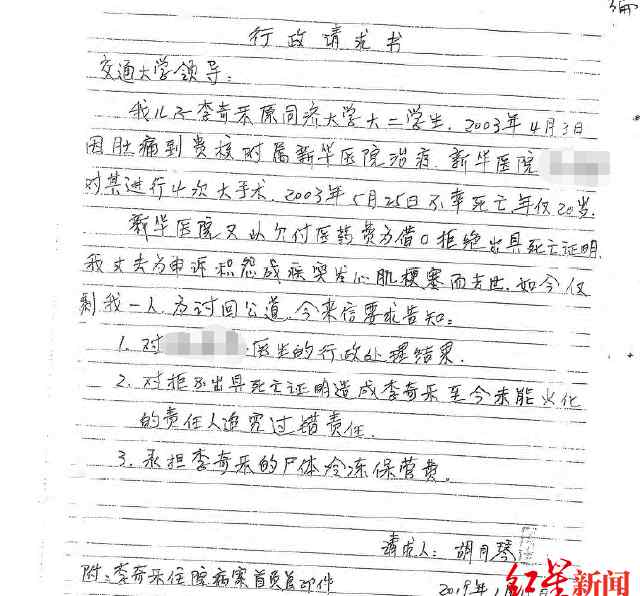 行政请求书
交通大学领导:
我儿子李奇乐原同济大学大二学生,2003年4月3日
因肚痛到贵校附属新华医院治病,新华医院
对其进行4次大手术,2003年5月25日不幸死亡年仅20岁.
新华医院又以欠付医药费为借口拒绝出具死亡证明,
我丈夫为申诉积怨成疾突发心肌梗塞而去世,如今仅
剩我一人,为讨回公道,今来信要求告知:
1.对 医生的行政处理结果.
2.对拒不出具死亡证明造成李奇乐至今未能火化
的责任人追究过错责任.
3.承担李奇乐的尸体冷冻保管费.
请求人: 胡月琴
附:李奇乐住院病案首页复印件
2019年
红星新闻